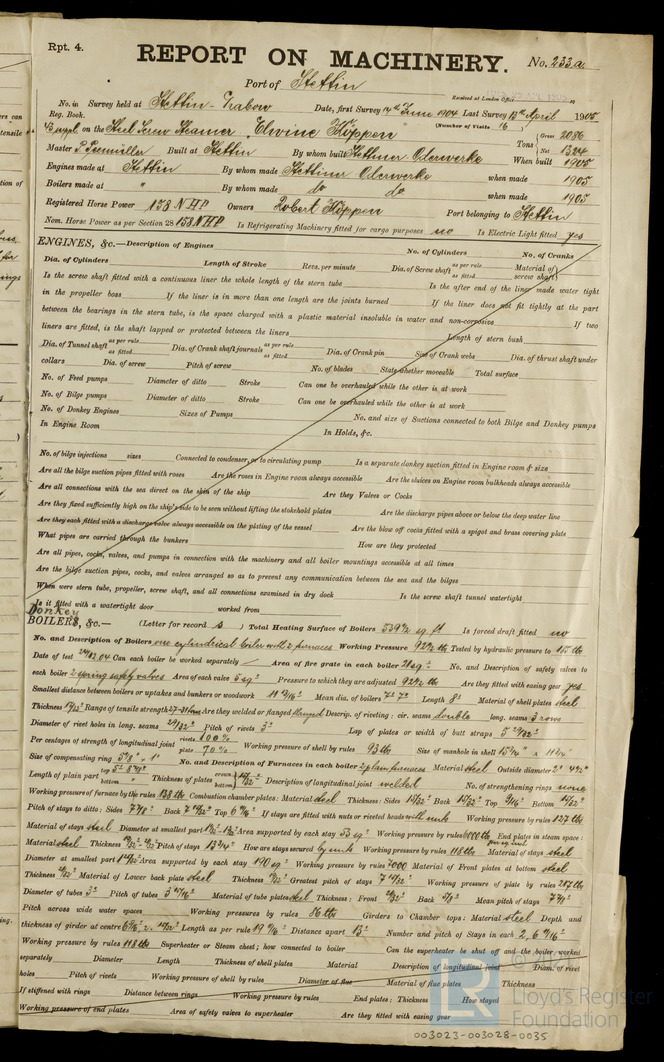 Rpt. 4.
REPORT ON MACHINERY.
No. 233a
Port of Stettin
Received at London Office
No. in Survey held at Stettin - Grabow Date, first Survey 14th June 1904 Last Survey 13th April 1905
Reg. Book.
(Number of Visits 16)
on the Steel Screw Steamer "Elwine Köppen" Tons Gross 2086 Net 1324
Master Built at Stettin By whom built Stettiner Oderwerke When built 1905
Engines made at Stettin By whom made Stettiner Oderwerke when made 1905
Boilers made at " By whom made do do when made 1905
Registered Horse Power 153 NHP Owners Robert Köppen Port belonging to Stettin
Nom. Horse Power as per Section 28 153 NHP Is Refrigerating Machinery fitted for cargo purposes no Is Electric Light fitted yes
ENGINES, &c.—Description of Engines No. of Cylinders No. of Cranks
Dia. of Cylinders Length of Stroke Revs. per minute Dia. of Screw shaft as per rule as fitted Material of screw shaft
Is the screw shaft fitted with a continuous liner the whole length of the stern tube Is the after end of the liner made water tight
in the propeller boss If the liner is in more than one length are the joints burned If the liner does not fit tightly at the part
between the bearings in the stern tube, is the space charged with a plastic material insoluble in water and non-corrosive If two
liners are fitted, is the shaft lapped or protected between the liners Length of stern bush
Dia. of Tunnel shaft as per rule as fitted Dia. of Crank shaft journals as per rule as fitted Dia. of Crank pin Size of Crank webs Dia. of thrust shaft under
collars Dia. of screw Pitch of screw No. of blades State whether moveable Total surface
No. of Feed pumps Diameter of ditto Stroke Can one be overhauled while the other is at work
No. of Bilge pumps Diameter of ditto Stroke Can one be overhauled while the other is at work
No. of Donkey Engines Sizes of Pumps No. and size of Suctions connected to both Bilge and Donkey pumps
In Engine Room In Holds, &c.
No. of bilge injections sizes Connected to condenser, or to circulating pump Is a separate donkey suction fitted in Engine room & size
Are all the bilge suction pipes fitted with roses Are the roses in Engine room always accessible Are the sluices on Engine room bulkheads always accessible
Are all connections with the sea direct on the skin of the ship Are they Valves or Cocks
Are they fixed sufficiently high on the ship's side to be seen without lifting the stokehold plates Are the discharge pipes above or below the deep water line
Are they each fitted with a discharge valve always accessible on the plating of the vessel Are the blow off cocks fitted with a spigot and brass covering plate
What pipes are carried through the bunkers How are they protected
Are all pipes, cocks, valves, and pumps in connection with the machinery and all boiler mountings accessible at all times
Are the bilge suction pipes, cocks, and valves arranged so as to prevent any communication between the sea and the bilges
When were stern tube, propeller, screw shaft, and all connections examined in dry dock Is the screw shaft tunnel watertight
Is it fitted with a watertight door worked from
Donkey
BOILERS, &c.— (Letter for record S) Total Heating Surface of Boilers 539 sq. ft Is forced draft fitted no
No. and Description of Boilers one cylindrical boiler with 2 furnaces Working Pressure 92½ lbs Tested by hydraulic pressure to 185 lbs
Date of test Can each boiler be worked separately Area of fire grate in each boiler 21 sq' No. and Description of safety valves to
each boiler 2 spring safety valves Area of each valve 5 sq" Pressure to which they are adjusted 92½ lbs Are they fitted with easing gear yes
Smallest distance between boilers or uptakes and bunkers or woodwork Mean dia. of boilers Length 8' Material of shell plates steel
Thickness Range of tensile strength 27-31 tons Are they welded or flanged flanged Descrip. of riveting: cir. seams double long. seams 3 rows
Diameter of rivet holes in long. seams Pitch of rivets 3" Lap of plates or width of butt straps
Per centages of strength of longitudinal joint rivets 100% plate 70% Working pressure of shell by rules 93 lbs Size of manhole in shell 15¾" x 11¾"
Size of compensating ring No. and Description of Furnaces in each boiler 2 plain furnaces Material steel Outside diameter
Length of plain part top bottom Thickness of plates crown bottom Description of longitudinal joint welded No. of strengthening rings none
Working pressure of furnaces by the rules 138 lbs Combustion chamber plates: Material steel Thickness: Sides Back Top Bottom
Pitch of stays to ditto: Sides Back Top If stays are fitted with nuts or riveted heads with nuts Working pressure by rules 127 lbs
Material of stays steel Diameter at smallest part Area supported by each stay 53 sq" Working pressure by rules End plates in steam space:
Material steel Thickness Pitch of stays How are stays secured by nuts Working pressure by rules 118 lbs Material of stays steel
Diameter at smallest part Area supported by each stay 190 sq" Working pressure by rules Material of Front plates at bottom steel
Thickness Material of Lower back plate steel Thickness Greatest pitch of stays Working pressure of plate by rules 287 lbs
Diameter of tubes 3" Pitch of tubes Material of tube plates steel Thickness: Front Back Mean pitch of stays
Pitch across wide water spaces Working pressures by rules Girders to Chamber tops: Material steel Depth and
thickness of girder at centre Length as per rule Distance apart 13" Number and pitch of Stays in each
Working pressure by rules 118 lbs Superheater or Steam chest; how connected to boiler Can the superheater be shut off and the boiler worked
separately Diameter Length Thickness of shell plates Material Description of longitudinal joint Diam. of rivet
holes Pitch of rivets Working pressure of shell by rules Diameter of flue Material of flue plates Thickness
If stiffened with rings Distance between rings Working pressure by rules End plates: Thickness How stayed
Working pressure of end plates Area of safety valves to superheater Are they fitted with easing gear
LR
Lloyd's Register
Foundation
003023-003028-0035